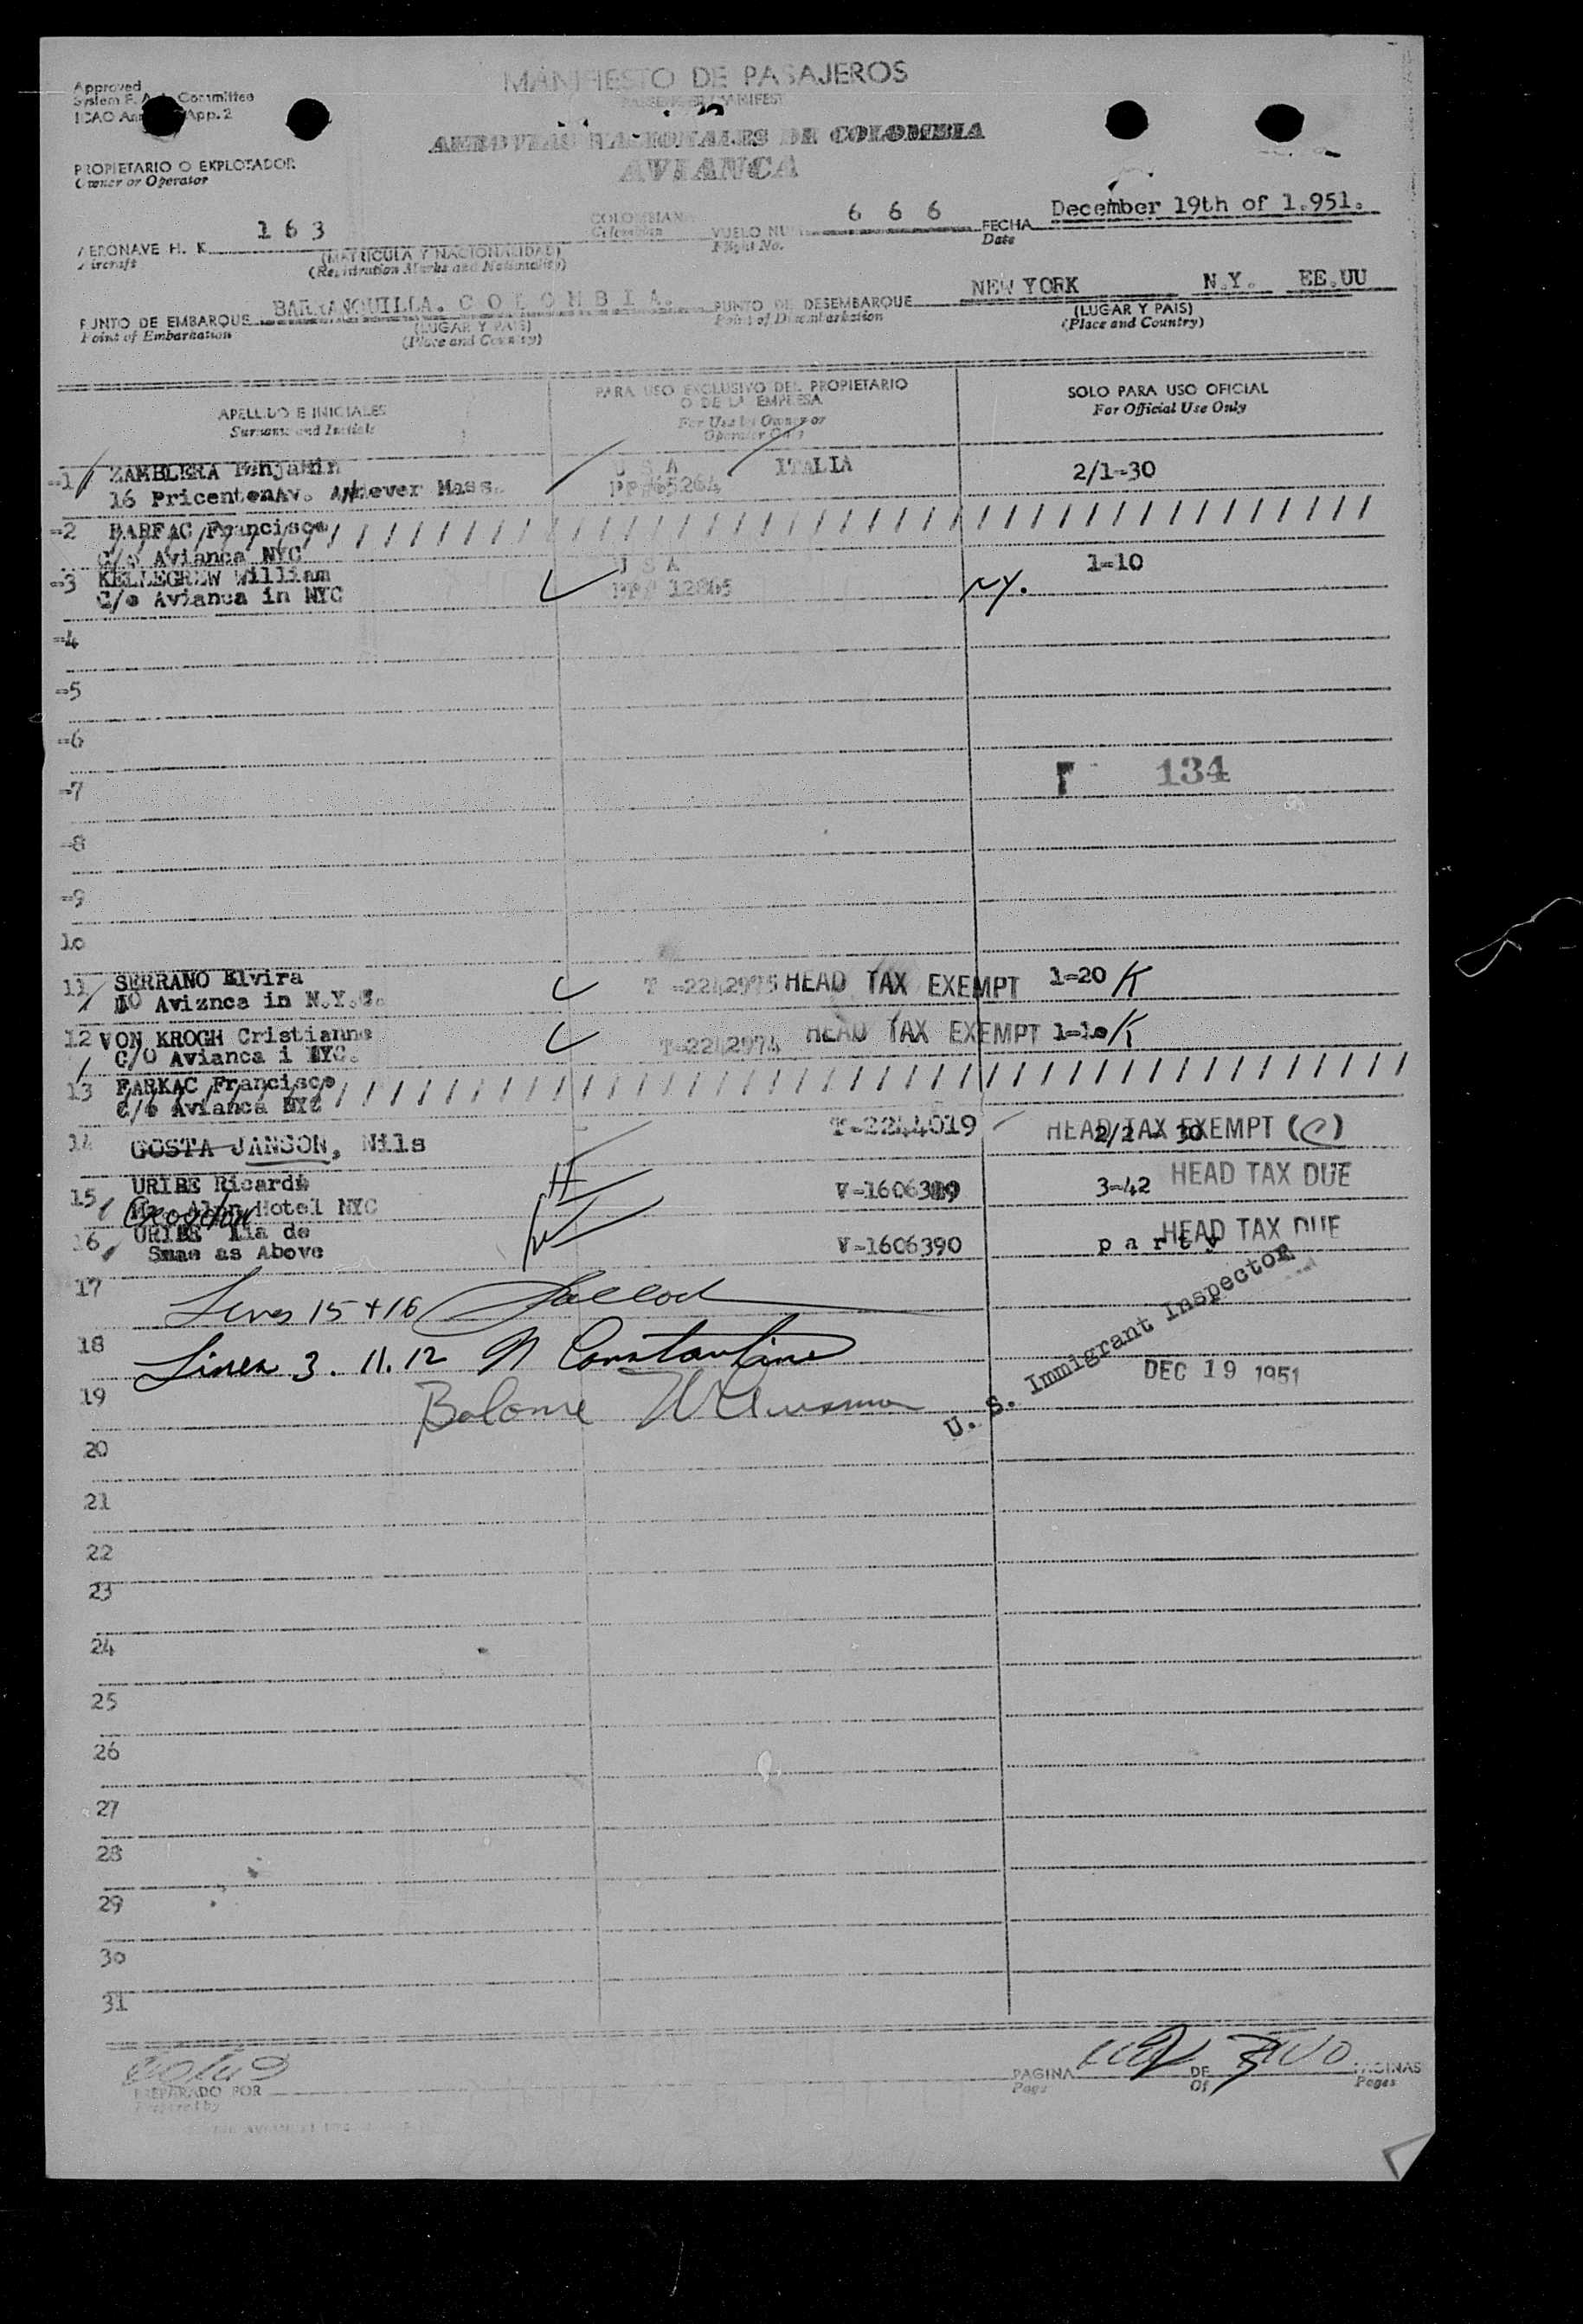 MANIFIESTO DE PASAJEROS
PASSENGER MANIFEST
Approved
System F. A. L. Committee
ICAO App. 2
AEROVIAS NACIONALES DE COLOMBIA
AVIANCA
PROPIETARIO O EXPLOTADOR
Owner or Operator
AERONAVE H. K. 163 COLOMBIANA VUELO NUM 6 6 6 FECHA December 19th of 1.951.
Aircraft (MATRICULA Y NACIONALIDAD) Colombian Flight No. Date
(Registration Marks and Nationality)
PUNTO DE EMBARQUE BARRANQUILLA. C O L O M B I A. PUNTO DE DESEMBARQUE NEW YORK N.Y. EE.UU
Point of Embarkation (LUGAR Y PAIS) Point of Disembarkation (LUGAR Y PAIS)
(Place and Country) (Place and Country)
APELLIDO E INICIALES PARA USO EXCLUSIVO DEL PROPIETARIO O DE LA EMPRESA SOLO PARA USO OFICIAL
Surname and Initials For Use by Owner or Operator Only For Official Use Only
=1 ZAMBLERA Benjamin U S A ITALIA 2/1=30
16 Andever Mass.
=2 Francisco
C/o Avianca NYC
=3 KELLEGREW William U S A 1=10
C/o Avianca in NYC NY.
=4
=5
=6
=7 134
=8
=9
10
11 SERRANO Elvira T =2242975 HEAD TAX EXEMPT 1=20 K
Aviznca in N.Y.
12 VON KROGH Cristianne T=2242974 HEAD TAX EXEMPT 1=10 K
C/O Avianca i NYC.
13 FARKAC Francisco
C/o Avianca NYC
14 GOSTA JANSON, Nils T=2244019 HEAD TAX EXEMPT (C)
2/2 30
15 URIBE Ricardo V=1606389 3=42 HEAD TAX DUE
Hotel NYC
16 URIBE Lia de V=1606390 party HEAD TAX DUE
Smae as Above
17 Lines 15 + 16
18 Lines 3. 11. 12 N Constantine
U. S. Immigrant Inspector
DEC 19 1951
19
20
21
22
23
24
25
26
27
28
29
30
31
PREPARADO POR PAGINA DE PAGINAS
Prepared by Page Of Pages